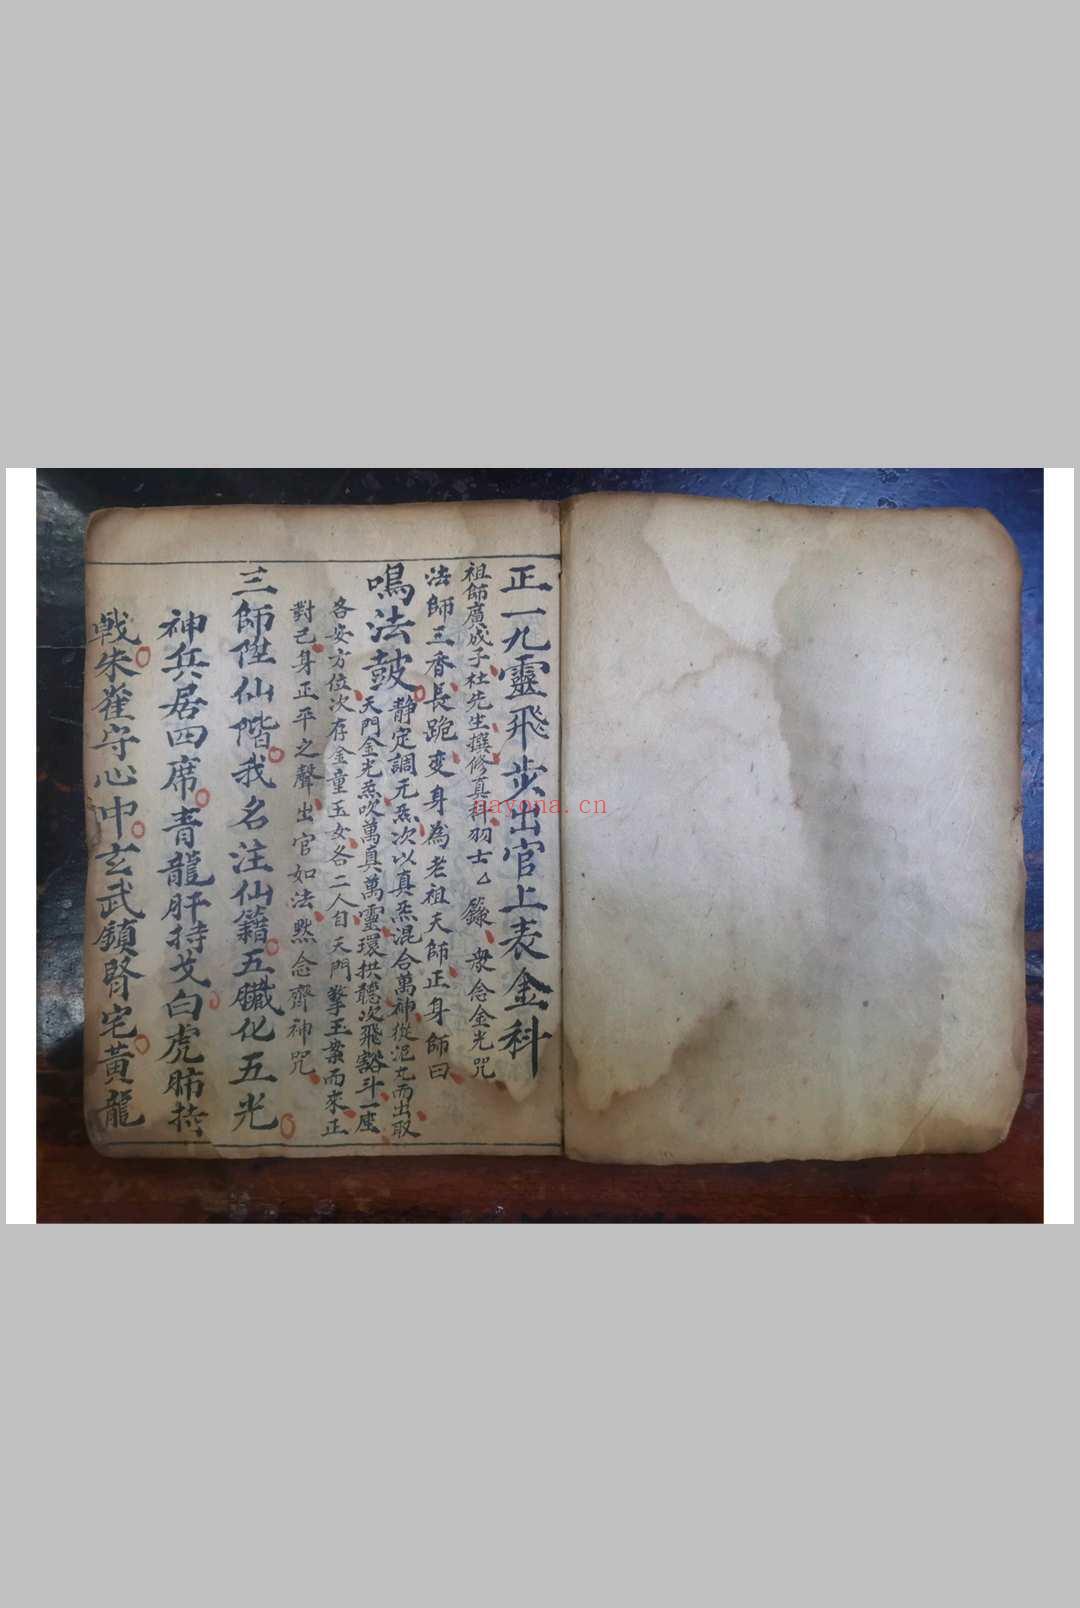 正一九靈飛步出官上表金科
祖師廣成子杜先生撰修真科羽士厶籙衆念金光咒
法師三香長跪变身為老祖天師正身師曰
鳴法皷
静定調元炁次以真炁混合萬神從泥丸而出取
天門金光炁吹萬真萬靈環拱聽次飛豁斗一座
各安方位次存金童玉女各二人自天門擎玉案而來正
對己身正平之聲出官如法黙念齊神咒
三師陞仙階我名注仙籍五臟化五光
神兵居四席青龍肝持戈白虎肺持
戟朱雀守心中玄武鎮腎宅黃龍
nayona.cn